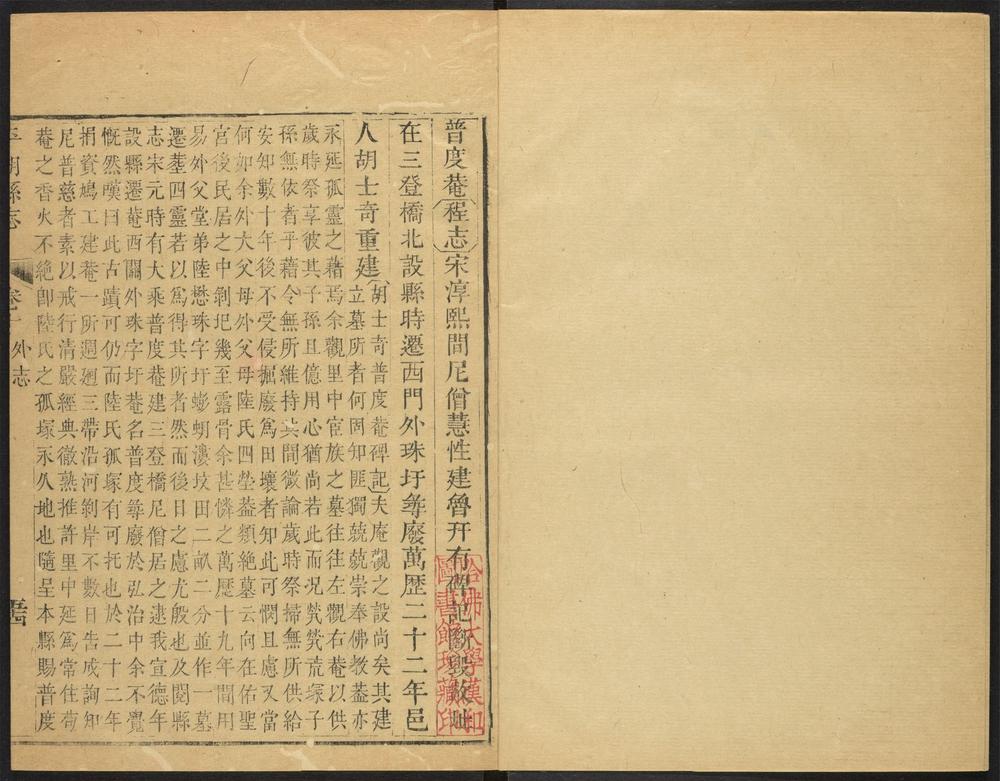 普度菴程志宋淳熙間尼僧慧性建魯幵有碑記斷毀故址
在三登橋北設縣時遷西門外珠圩尋廢萬歷二十二年邑
人胡士奇重建胡士奇普度菴碑記夫庵觀之設尚矣其建
立墓所者何固知匪獨兢兢崇奉佛教葢亦
永延孤靈之藉焉余觀里中宦族之墓往往左觀右菴以供
歲時祭享彼其子孫且億用心猶尚若此而況煢煢荒塚子
孫無依者乎藉令無所維持其間微論歲時祭掃無所供給
安知數十年後不受侵掘廢爲田壤者知此可憫且慮又當
何如余外大父母外父母陸氏四塋葢類絶墓云向在佑聖
宮後民居之中剝圯幾至露骨余甚憐之萬歷十九年間用
易外父堂弟陸懋珠字圩蟛蜞漊坟田二畝二分並作一墓
遷塟四靈若以爲得其所者然而後日之慮尤殷也及閱縣
志宋元時有大乘普度菴建三登橋尼僧居之逮我宣德年
設縣遷菴西關外珠字圩菴名普度尋廢於弘治中余不覺
慨然嘆曰此古蹟可仍而陸氏孤塚有可托也於二十二年
捐資鳩工建菴一所迴廻三帶沿河剝岸不數日告成詢知
尼普慈者素以戒行清嚴經典徹熟推許里中延爲常住茍
菴之香火不絶卽陸氏之孤塚永久地也隨呈本縣賜普度
平湖縣志 卷十 外志
哈佛大學漢和
圖書館珍藏印